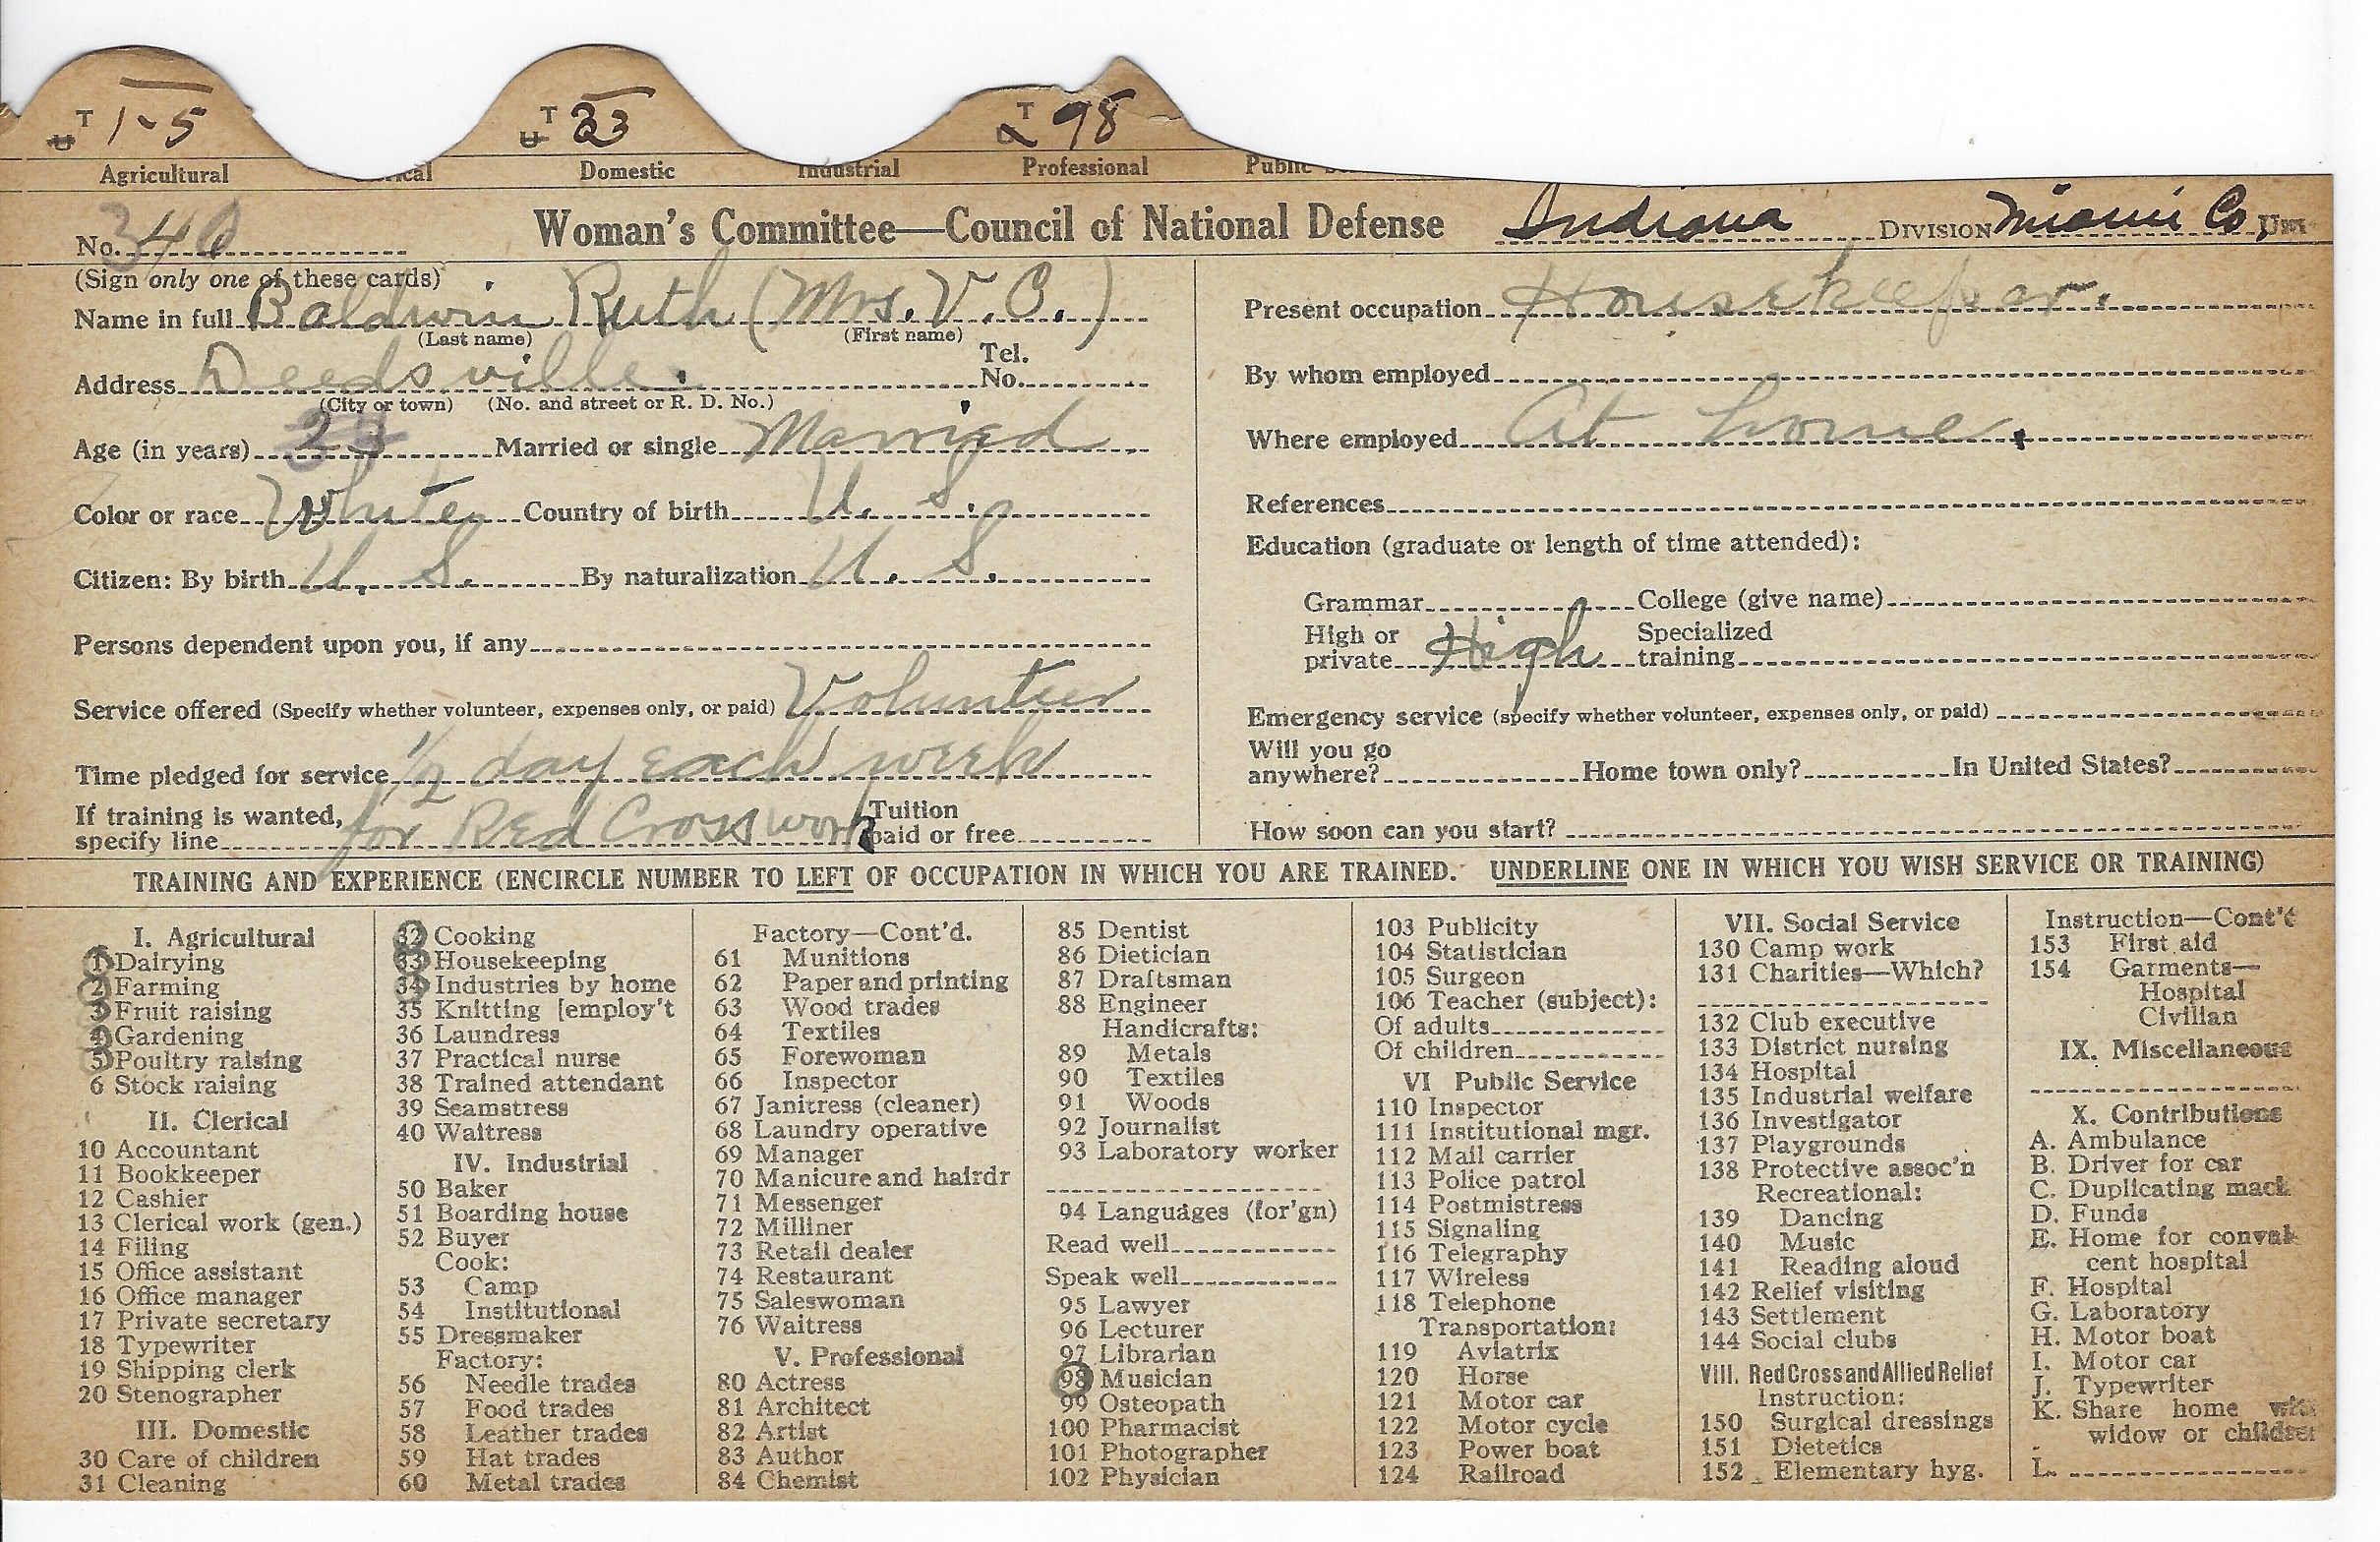 T U 1-5 T U 33 T U 98
Agricultural Domestic Industrial Professional Public
No. 340 Woman's Committee—Council of National Defense Indiana DIVISION Miami Co, UNIT
(Sign only one of these cards)
Name in full Baldwin Ruth (Mrs. V. C.)
(Last name) (First name)
Address Deedsville. Tel. No.
(City or town) (No. and street or R. D. No.)
Age (in years) 23 Married or single Married
Color or race White Country of birth U. S.
Citizen: By birth U. S. By naturalization U. S.
Persons dependent upon you, if any
Service offered (Specify whether volunteer, expenses only, or paid) Volunteer
Time pledged for service 1/2 day each week
If training is wanted, specify line for Red Cross work Tuition paid or free
Present occupation Housekeeper.
By whom employed
Where employed At home.
References
Education (graduate or length of time attended):
Grammar College (give name)
High or private High Specialized training
Emergency service (specify whether volunteer, expenses only, or paid)
Will you go anywhere? Home town only? In United States?
How soon can you start?
TRAINING AND EXPERIENCE (ENCIRCLE NUMBER TO LEFT OF OCCUPATION IN WHICH YOU ARE TRAINED. UNDERLINE ONE IN WHICH YOU WISH SERVICE OR TRAINING)
I. Agricultural
1 Dairying
2 Farming
3 Fruit raising
4 Gardening
5 Poultry raising
6 Stock raising
II. Clerical
10 Accountant
11 Bookkeeper
12 Cashier
13 Clerical work (gen.)
14 Filing
15 Office assistant
16 Office manager
17 Private secretary
18 Typewriter
19 Shipping clerk
20 Stenographer
III. Domestic
30 Care of children
31 Cleaning
32 Cooking
33 Housekeeping
34 Industries by home
35 Knitting [employ't
36 Laundress
37 Practical nurse
38 Trained attendant
39 Seamstress
40 Waitress
IV. Industrial
50 Baker
51 Boarding house
52 Buyer
Cook:
53 Camp
54 Institutional
55 Dressmaker
Factory:
56 Needle trades
57 Food trades
58 Leather trades
59 Hat trades
60 Metal trades
Factory—Cont'd.
61 Munitions
62 Paper and printing
63 Wood trades
64 Textiles
65 Forewoman
66 Inspector
67 Janitress (cleaner)
68 Laundry operative
69 Manager
70 Manicure and hairdr
71 Messenger
72 Milliner
73 Retail dealer
74 Restaurant
75 Saleswoman
76 Waitress
V. Professional
80 Actress
81 Architect
82 Artist
83 Author
84 Chemist
85 Dentist
86 Dietician
87 Draftsman
88 Engineer
Handicrafts:
89 Metals
90 Textiles
91 Woods
92 Journalist
93 Laboratory worker
94 Languages (for'gn)
Read well
Speak well
95 Lawyer
96 Lecturer
97 Librarian
98 Musician
99 Osteopath
100 Pharmacist
101 Photographer
102 Physician
103 Publicity
104 Statistician
105 Surgeon
106 Teacher (subject):
Of adults
Of children
VI Public Service
110 Inspector
111 Institutional mgr.
112 Mail carrier
113 Police patrol
114 Postmistress
115 Signaling
116 Telegraphy
117 Wireless
118 Telephone
Transportation:
119 Aviatrix
120 Horse
121 Motor car
122 Motor cycle
123 Power boat
124 Railroad
VII. Social Service
130 Camp work
131 Charities—Which?
132 Club executive
133 District nursing
134 Hospital
135 Industrial welfare
136 Investigator
137 Playgrounds
138 Protective assoc'n
Recreational:
139 Dancing
140 Music
141 Reading aloud
142 Relief visiting
143 Settlement
144 Social clubs
VIII. Red Cross and Allied Relief
Instruction:
150 Surgical dressings
151 Dietetics
152 Elementary hyg.
Instruction—Cont'd
153 First aid
154 Garments—
Hospital
Civilian
IX. Miscellaneous
X. Contributions
A. Ambulance
B. Driver for car
C. Duplicating mach
D. Funds
E. Home for conval
cent hospital
F. Hospital
G. Laboratory
H. Motor boat
I. Motor car
J. Typewriter
K. Share home with
widow or children
L.